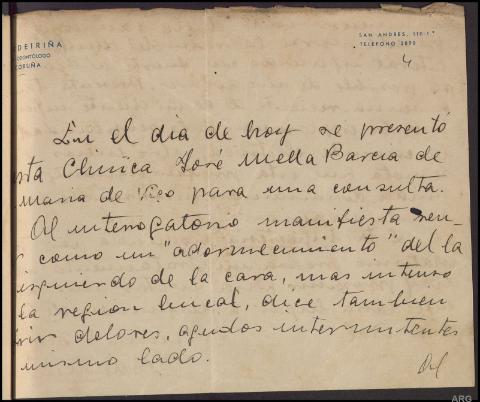 DEIRIÑA
ODONTÓLOGO
CORUÑA
SAN ANDRES, 110-1.º
TELEFONO 2890
4
En el dia de hoy se presentó
sta Clinica José Mella Barcia de
maria de para una consulta.
Al interrogatorio manifiesta sen-
r como un "adormecimiento" del la
izquierdo de la cara, mas intenso
la region bucal, dice tambien
dolores, agudos intermitentes
mismo lado.
ARG